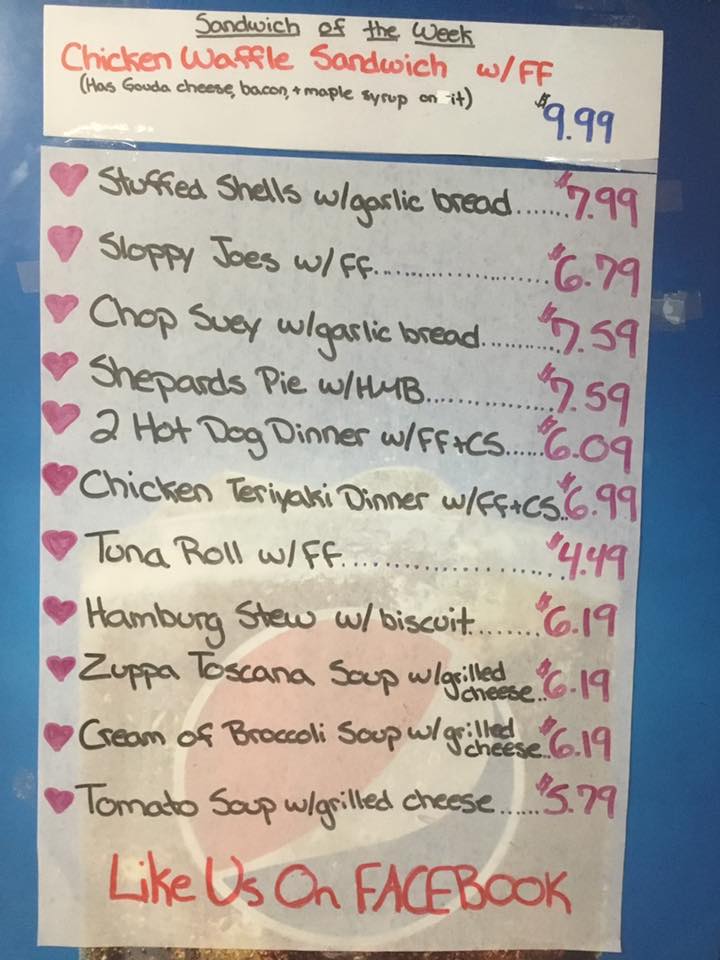 Sandwich of the Week
Chicken Waffle Sandwich w/FF
(Has Gouda cheese, bacon, + maple syrup on it)
$9.99
Stuffed Shells w/garlic bread.......$7.99
Sloppy Joes w/FF....................$6.79
Chop Suey w/garlic bread..........$7.59
Shepards Pie w/HMB................$7.59
2 Hot Dog Dinner w/FF+CS.....$6.09
Chicken Teriyaki Dinner w/FF+CS..$6.99
Tuna Roll w/FF......................$4.49
Hamburg Stew w/biscuit........$6.19
Zuppa Toscana Soup w/grilled
cheese..$6.19
Cream of Broccoli Soup w/grilled
cheese..$6.19
Tomato Soup w/grilled cheese.....$5.79
Like Us On FACEBOOK